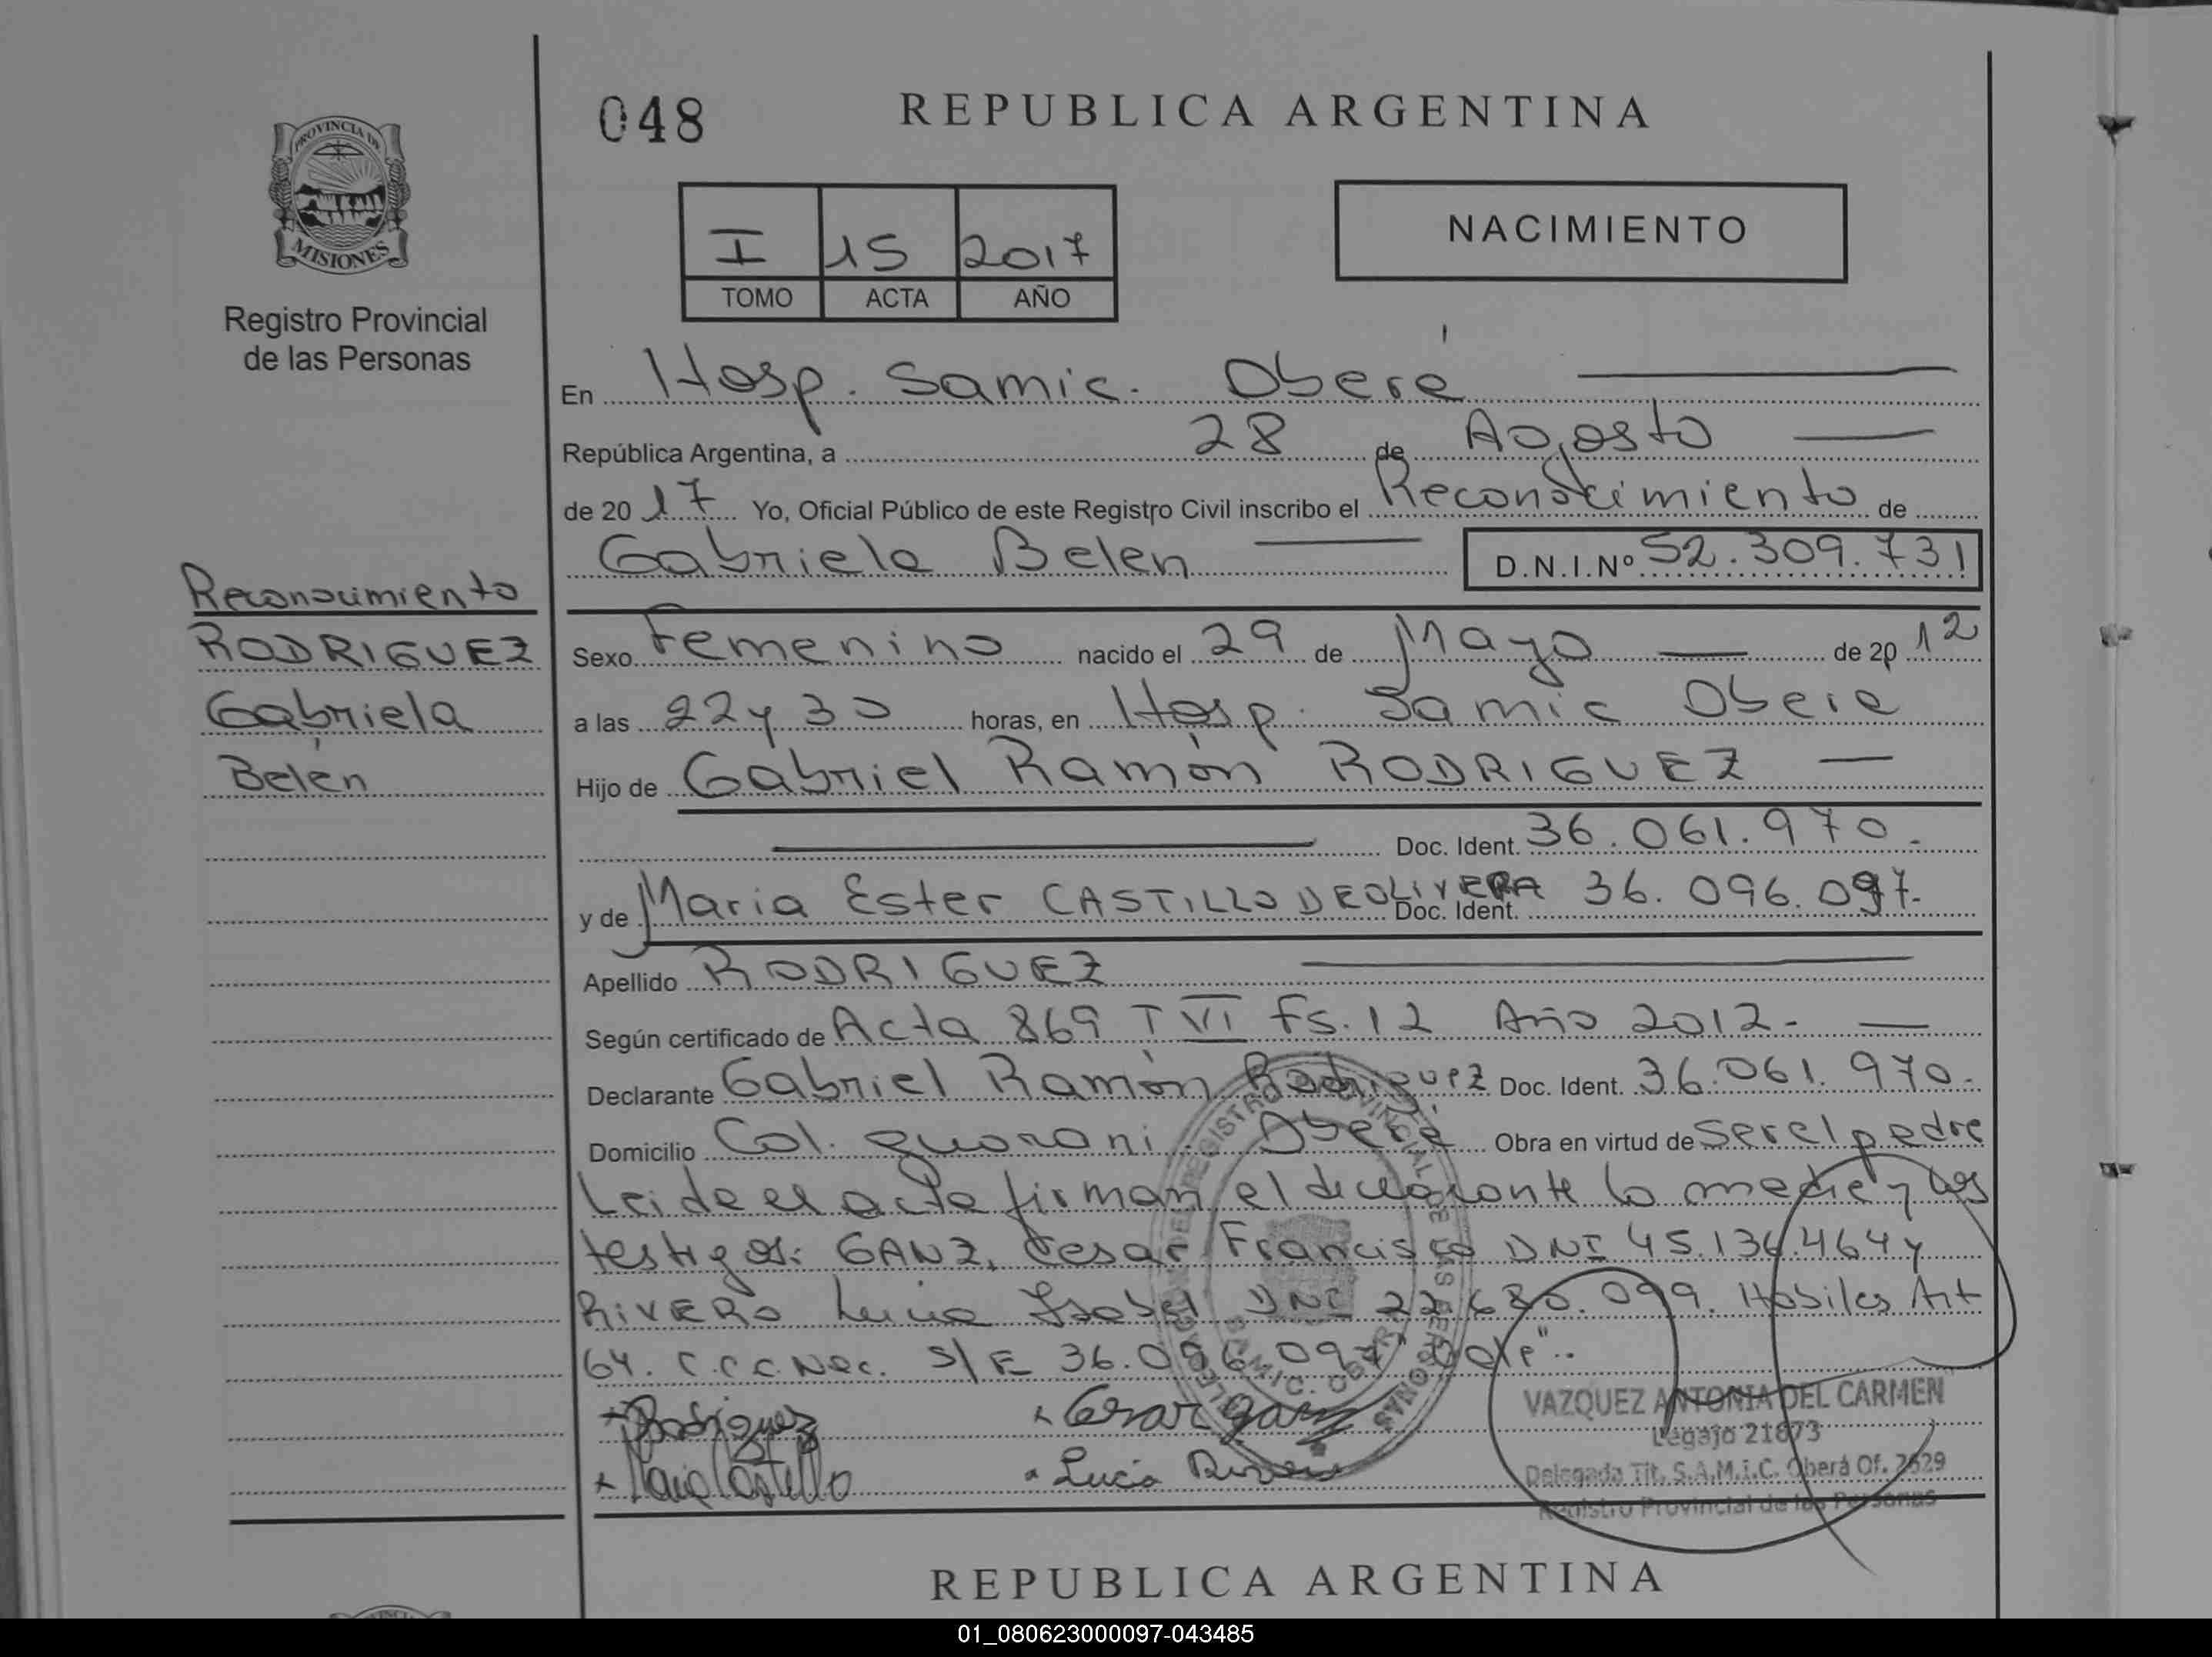 048
REPUBLICA ARGENTINA
PROVINCIA DE
MISIONES
Registro Provincial
de las Personas
I 15 2017
TOMO ACTA AÑO
NACIMIENTO
En Hosp. Samic. Oberá
República Argentina, a 28 de Agosto
de 2017 Yo, Oficial Público de este Registro Civil inscribo el Reconocimiento de
Gabriela Belen D.N.I.Nº 52.309.731
Reconocimiento
RODRIGUEZ
Gabriela
Belén
Sexo Femenino nacido el 29 de Mayo de 2012
a las 22 y 30 horas, en Hosp. Samic Obera
Hijo de Gabriel Ramón RODRIGUEZ
Doc. Ident. 36.061.970.-
y de Maria Ester CASTILLO DEOLIVERA Doc. Ident. 36.096.097.-
Apellido RODRIGUEZ
Según certificado de Acta 869 T VI Fs. 12 Año 2012.-
Declarante Gabriel Ramón Rodriguez Doc. Ident. 36.061.970.-
Domicilio Col. guarani Oberá Obra en virtud de ser el padre
Leida el acta firman el declarante la madre y los
testigos: GANZ, Cesar Francisco DNI 45.136.464 y
RIVERO Lucia Isabel DNI 22.680.099. Habiles Art
64. C.C.C. Nac. S/E 36.096.097 "Vale".-
Rodriguez
Cesar ganz
Maria Castillo
Lucia Rivero
VAZQUEZ ANTONIA DEL CARMEN
Legajo 21873
Delegada Tit. S.A.M.I.C. Oberá Of. 2629
Registro Provincial de las Personas
REPUBLICA ARGENTINA
01_080623000097-043485